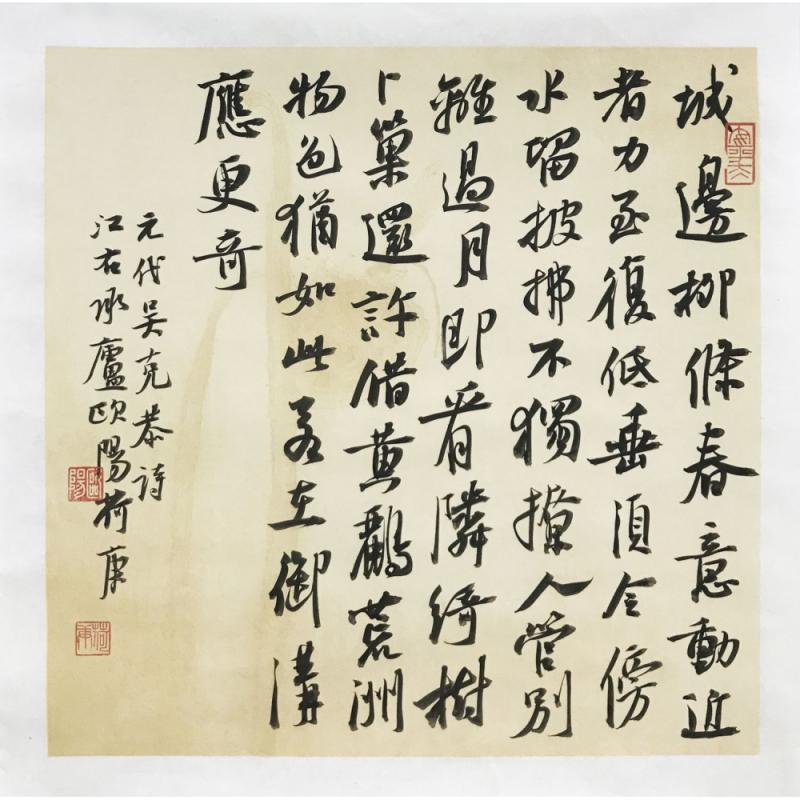 城邊柳條春意動近
者力至復低垂須令傍
水留披拂不獨撩人管別
離過月即看隣綺樹
卜巢還許借黄鸝荒洲
物色猶如此若在御溝
應更奇
元代吴克恭詩
江右承廬歐陽荷庚
歐陽
荷庚